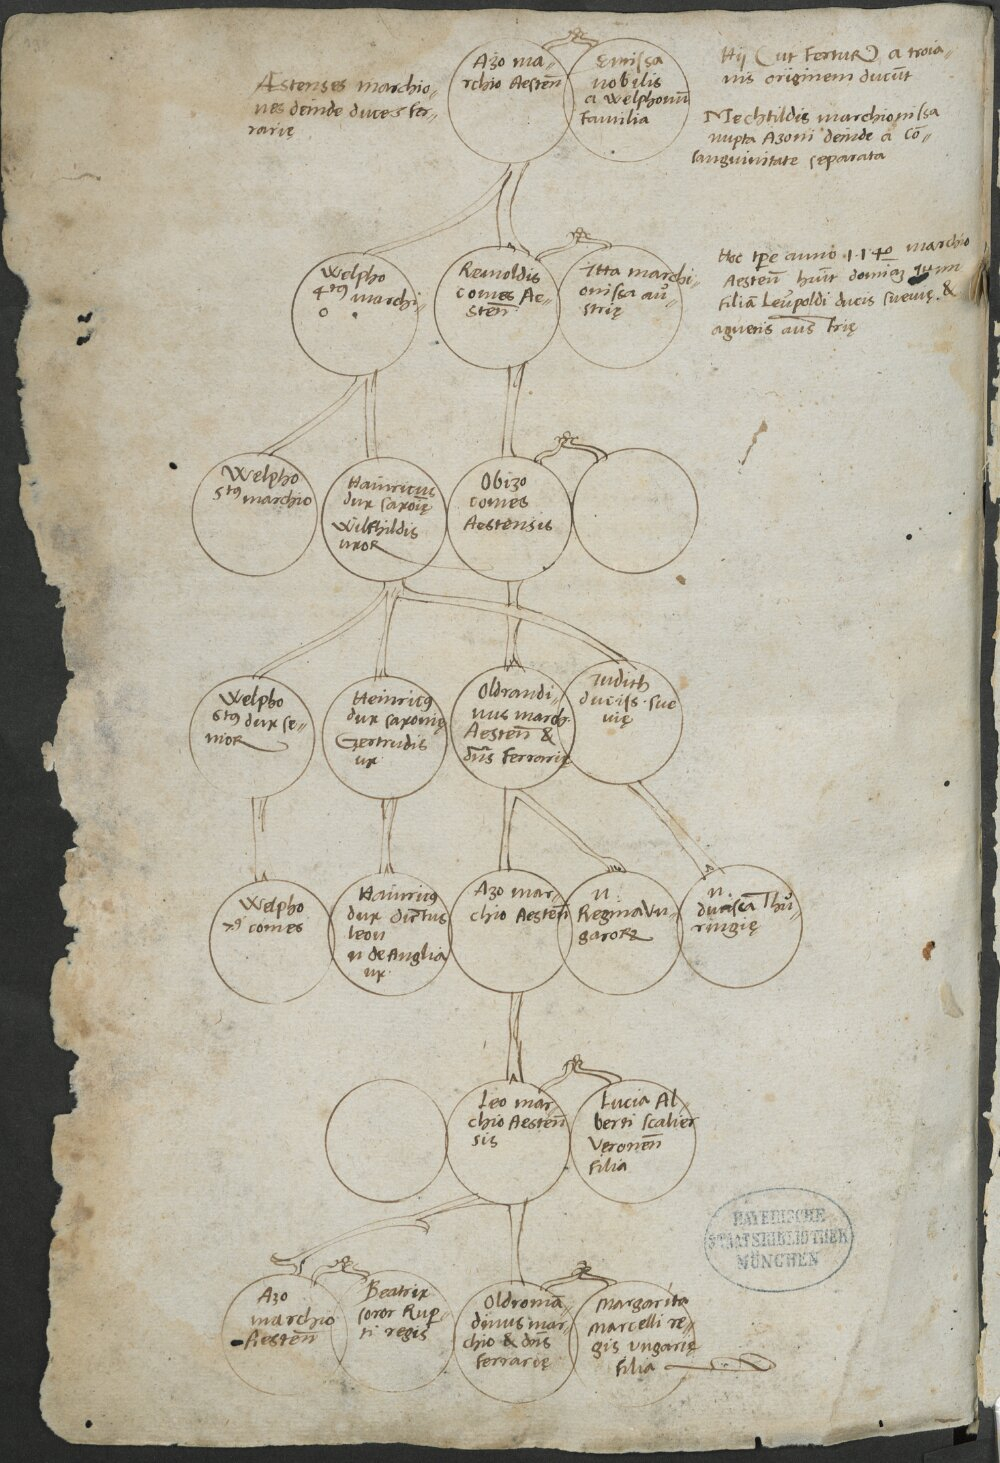 Æstenses marchio-
nes deinde duces fer-
rarię
Azo ma-
rchio Aesten̄
Emissa
nobilis
a Welphonū
familia
Hij (ut fertur) a troia-
nis originem ducūt
Mechtildis marchionissa
nupta Azoni deinde a cō-
sanguinitate separata
Welpho
4tꝰ marchi-
o
Reinoldis
comes Ae-
sten̄
Itta marchi-
onissa au-
strię
Hoc tp̄e anno 1140 marchio
Aesten̄
filiā Leupoldi ducis suevię &
agnetis austrię
Welpho
5tꝰ marchio
Hainricus
dux saxoīę
Wilthildis
uxor
Obizo
comes
Aestensis
Welpho
6tꝰ dux se-
nior
Heinricꝰ
dux saxonię
Gertrudis
ux
Oldrandi-
nus march
Aesten̄ &
dn̄s Ferrarię
Iudith
duciss. sue
vię
Welpho
7ꝰ comes
Hainricꝰ
dux dictus
leon
n de Anglia
ux
Azo mar-
chio Aesten̄
n
Regina Vn-
garorꝝ
n
ducissa Thu-
ringię
Leo mar-
chio Aesten̄
sis
Lucia Al-
berti scalier
Veronen̄
filia
Azo
marchio
Aesten̄
Beatrix
soror Rup-
ti regis
Oldromā-
dinus mar-
chio & dn̄s
ferrarię
Margarita
Marcelli re-
gis ungarię
filia
BAYERISCHE
STAATSBIBLIOTHEK
MÜNCHEN